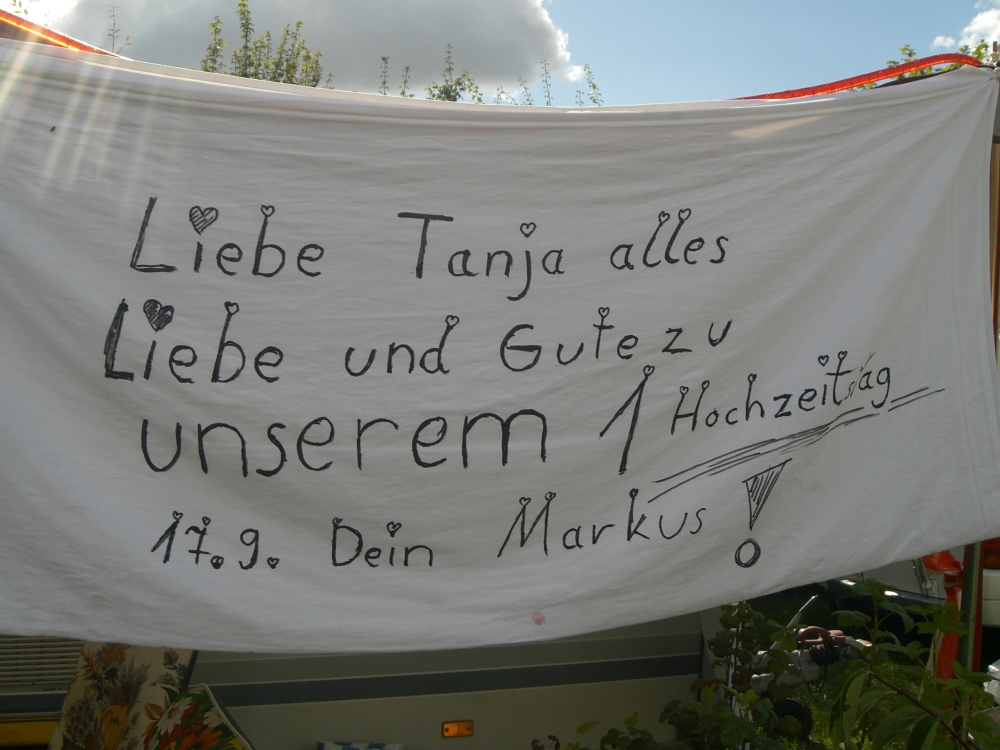 Liebe Tanja alles
Liebe und Gute zu
unserem 1 Hochzeitstag
17.9. Dein Markus !